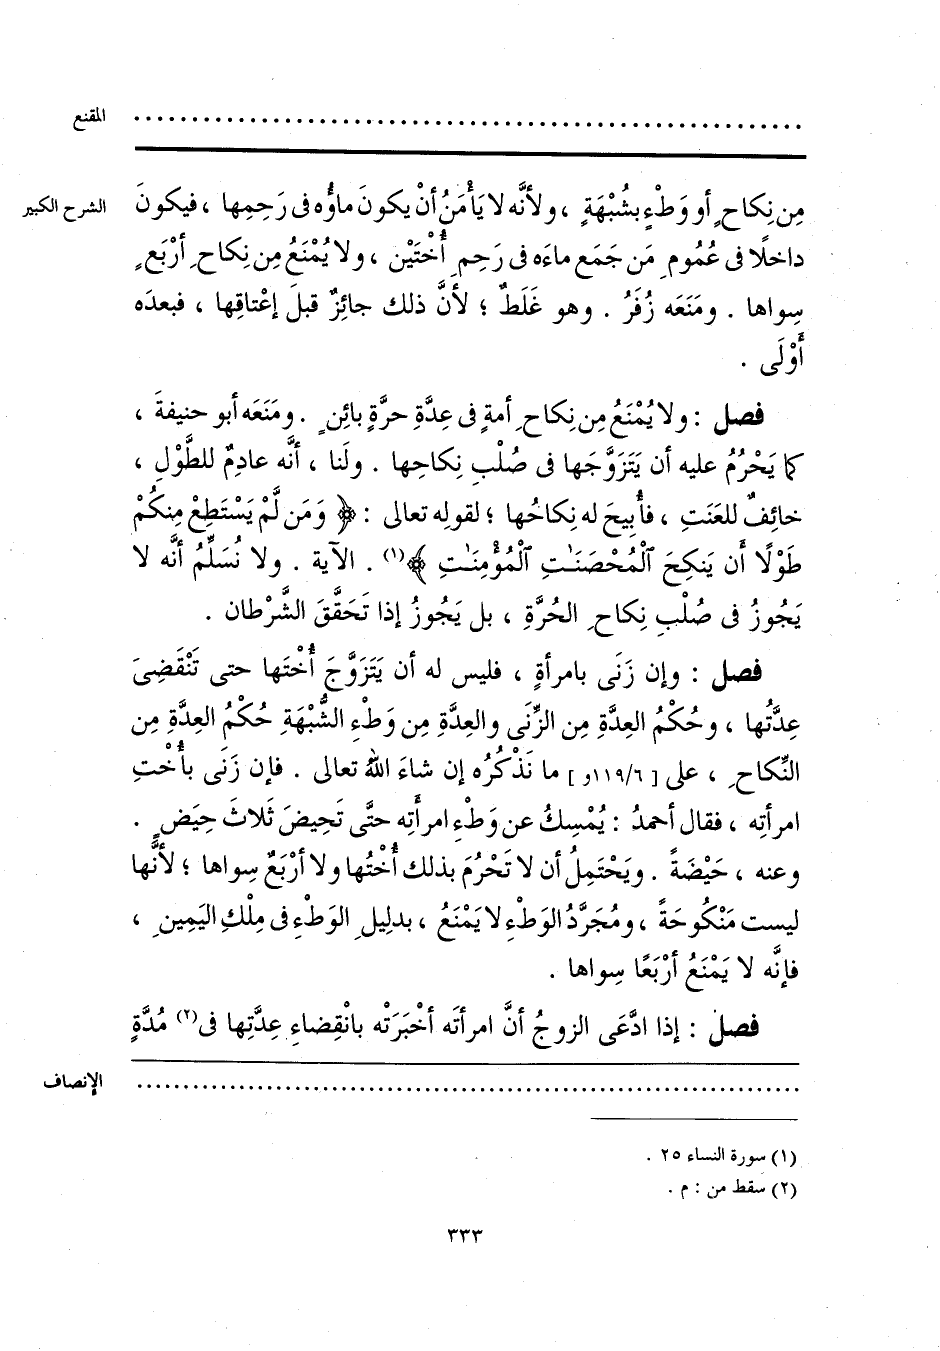 المقنع ..........................................................
الشرح الكبير مِن نِكاحٍ أو وَطْءٍ بشُبْهَةٍ ، ولأنَّه لا يَأْمَنُ أنْ يكونَ ماؤُه فى رَحِمِها ، فيكونَ
داخلًا فى عُمُومِ مَن جَمَع ماءَه فى رَحِمِ أُخْتَيْن ، ولا يُمْنَعُ مِن نِكاحِ أرْبَعٍ
سِواها . ومَنَعَه زُفَرُ . وهو غَلَطٌ ؛ لأنَّ ذلك جائِزٌ قبلَ إعْتاقِها ، فبعدَه
أَوْلَى .
فصل : ولا يُمْنَعُ مِن نِكاحِ أمةٍ فى عِدَّةِ حرَّةٍ بائِنٍ . ومَنَعَه أبو حنيفةَ ،
كما يَحْرُمُ عليه أن يَتَزَوَّجَها فى صُلْبِ نِكاحِها . ولَنا ، أنَّه عادِمٌ للطَّوْلِ ،
خائِفٌ للعَنَتِ ، فأُبِيحَ له نِكاحُها ؛ لقولِه تعالى : ﴿ وَمَن لَّمْ يَسْتَطِعْ مِنكُمْ
طَوْلًا أَن يَنكِحَ ٱلْمُحْصَنَـٰتِ ٱلْمُؤْمِنَـٰتِ ﴾(١) . الآية . ولا نُسَلِّمُ أنَّه لا
يَجُوزُ فى صُلْبِ نِكاحِ الحُرَّةِ ، بل يَجُوزُ إذا تَحَقَّقَ الشَّرْطان .
فصل : وإن زَنَى بامرأةٍ ، فليس له أن يَتَزَوَّجَ أُخْتَها حتى تَنْقَضِىَ
عِدَّتُها ، وحُكْمُ العِدَّةِ مِن الزِّنَى والعِدَّةِ مِن وَطْءِ الشُّبْهَةِ حُكْمُ العِدَّةِ مِن
النِّكاحِ ، على [ ١١٩/٦و ] ما نَذْكُرُه إن شاءَ اللهُ تعالى . فإن زَنَى بأُخْتِ
امرأتِه ، فقال أحمدُ : يُمْسِكُ عن وَطْءِ امرأتِه حتَّى تَحِيضَ ثَلاثَ حِيَضٍ .
وعنه ، حَيْضَةً . ويَحْتَمِلُ أن لا تَحْرُمَ بذلك أُخْتُها ولا أرْبَعٌ سِواها ؛ لأنَّها
ليست مَنْكُوحَةً ، ومُجَرَّدُ الوَطْءِ لا يَمْنَعُ ، بدليلِ الوَطْءِ فى مِلْكِ اليَمِينِ ،
فإنَّه لا يَمْنَعُ أرْبَعًا سِواها .
فصل : إذا ادَّعَى الزوجُ أنَّ امرأتَه أخْبَرَتْه بانْقِضاءِ عِدَّتِها فى(٢) مُدَّةٍ
الإنصاف ..........................................................
(١) سورة النساء ٢٥ .
(٢) سقط من : م .
٣٣٣